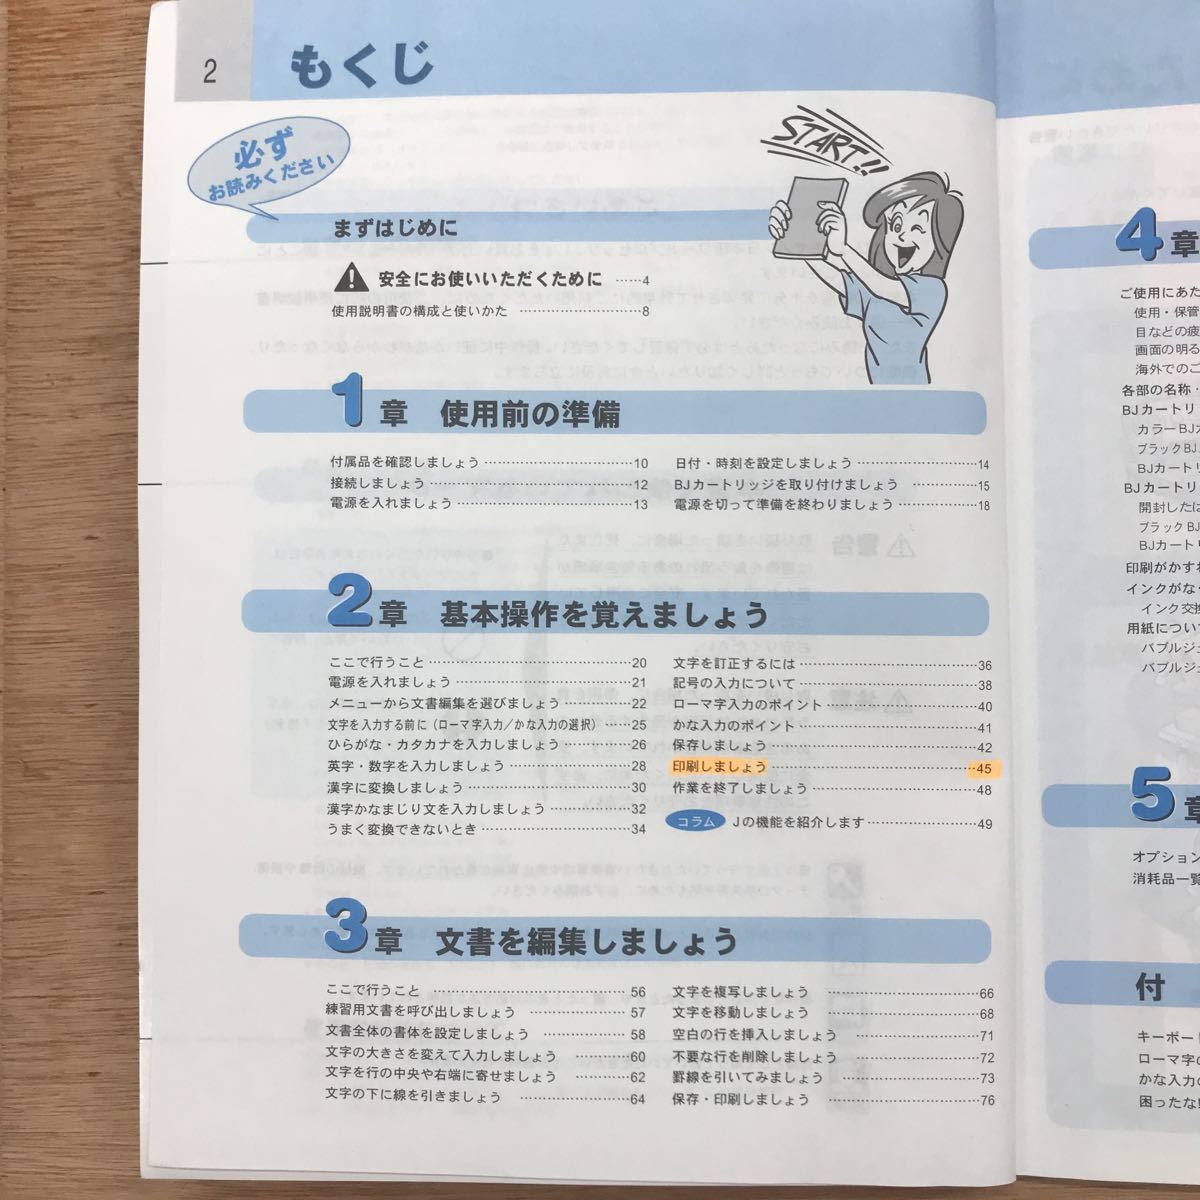 2
もくじ
必ず
お読みください
START!!
まずはじめに
安全にお使いいただくために ……4
使用説明書の構成と使いかた ………………8
1章 使用前の準備
付属品を確認しましょう ……………………10
接続しましょう ………………………………12
電源を入れましょう …………………………13
日付・時刻を設定しましょう ………………14
BJカートリッジを取り付けましょう ………15
電源を切って準備を終わりましょう ………18
2章 基本操作を覚えましょう
ここで行うこと ………………………………20
電源を入れましょう …………………………21
メニューから文書編集を選びましょう ……22
文字を入力する前に（ローマ字入力／かな入力の選択） ……25
ひらがな・カタカナを入力しましょう ……26
英字・数字を入力しましょう ………………28
漢字に変換しましょう ………………………30
漢字かなまじり文を入力しましょう ………32
うまく変換できないとき ……………………34
文字を訂正するには …………………………36
記号の入力について …………………………38
ローマ字入力のポイント ……………………40
かな入力のポイント …………………………41
保存しましょう ………………………………42
印刷しましょう ………………………………45
作業を終了しましょう ………………………48
コラム Jの機能を紹介します ………………49
3章 文書を編集しましょう
ここで行うこと ………………………………56
練習用文書を呼び出しましょう ……………57
文書全体の書体を設定しましょう …………58
文字の大きさを変えて入力しましょう ……60
文字を行の中央や右端に寄せましょう ……62
文字の下に線を引きましょう ………………64
文字を複写しましょう ………………………66
文字を移動しましょう ………………………68
空白の行を挿入しましょう …………………71
不要な行を削除しましょう …………………72
罫線を引いてみましょう ……………………73
保存・印刷しましょう ………………………76
4章
ご使用にあた
使用・保管
目などの疲
画面の明る
海外でのご
各部の名称・
BJカートリ
カラーBJカ
ブラックBJ
BJカートリ
BJカートリ
開封したは
ブラックBJ
BJカートリ
印刷がかすれ
インクがなく
インク交換
用紙について
バブルジェ
バブルジェ
5章
オプション
消耗品一覧
付
キーボード
ローマ字の
かな入力の
困ったな!